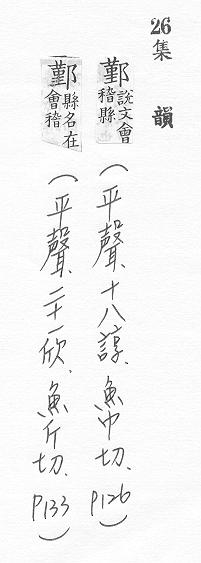 26集 韻
鄞說文會稽縣(平聲、十八諄、魚巾切、P126)
鄞縣名在會稽(平聲、二十一欣、魚斤切、P133)